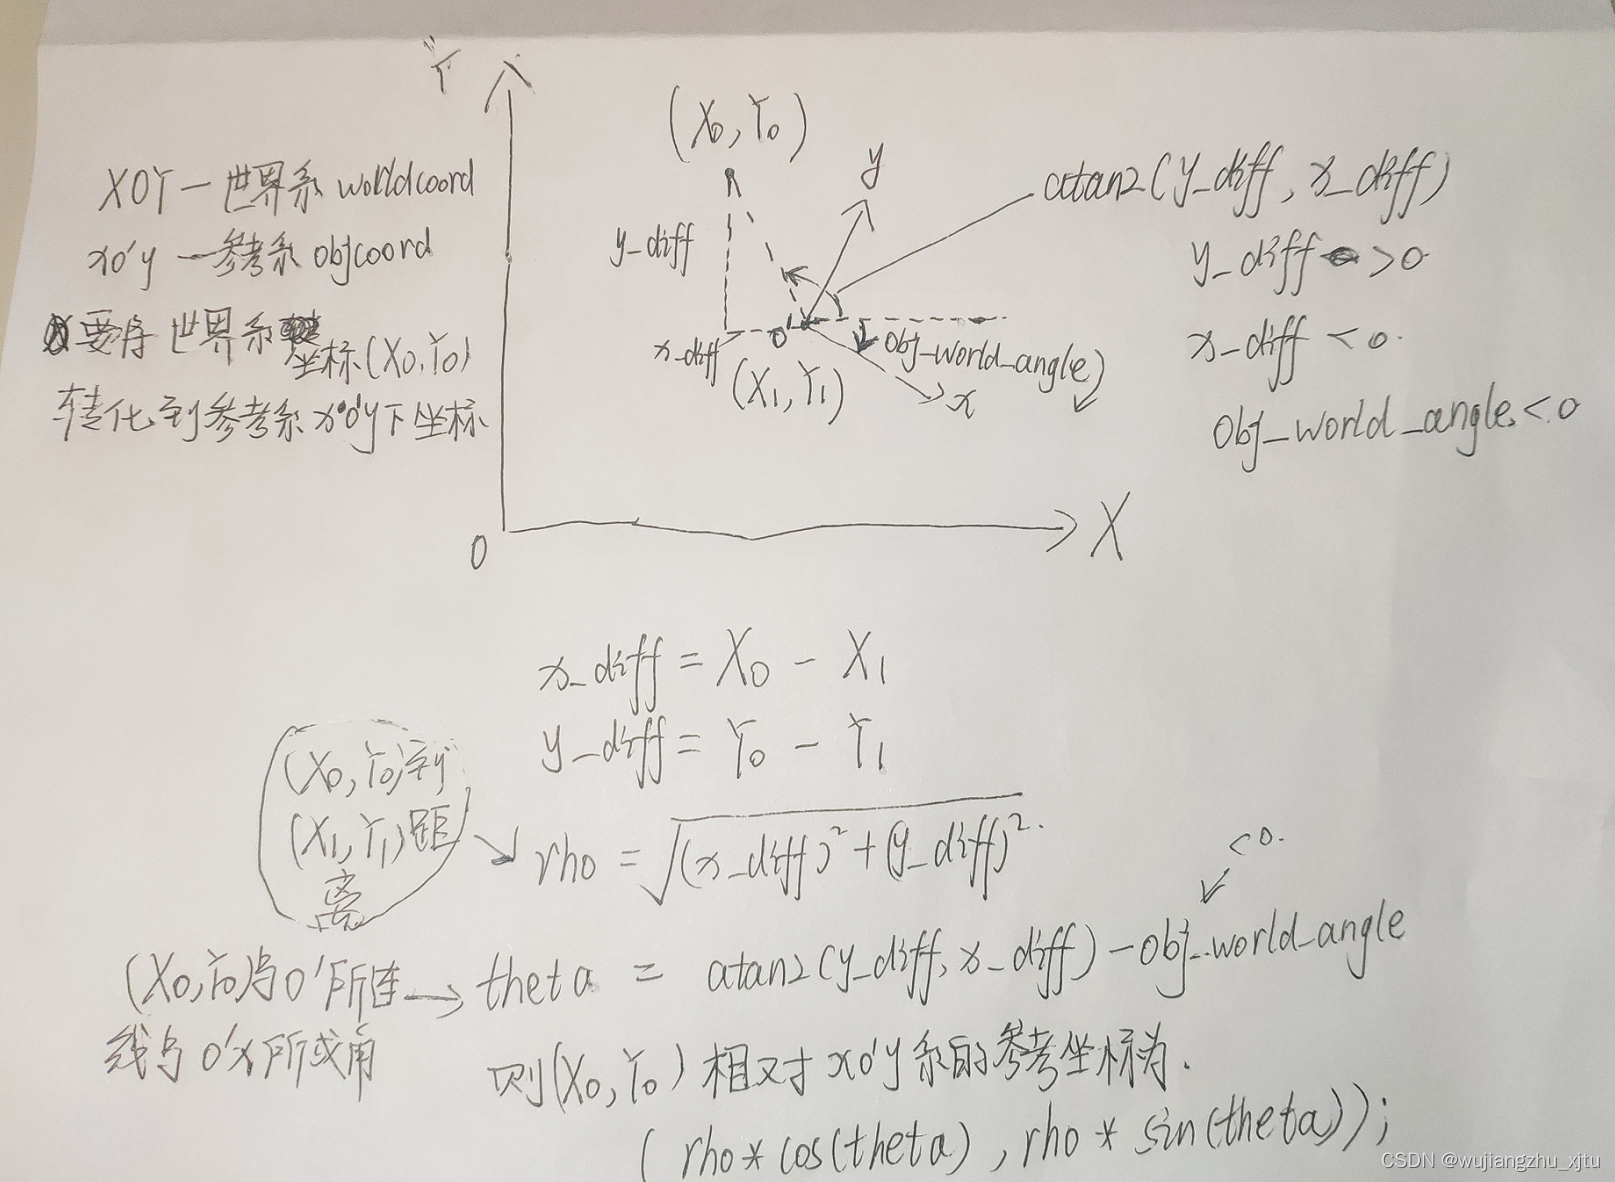 Y
(X0, Y0)
y
XOY — 世界系 worldcoord
xo'y — 参考系 objcoord
要将世界系坐标(X0, Y0)
转化到参考系 xo'y下坐标
y_diff
x_diff
o'
(X1, Y1)
obj_world_angle
x
atan2(y_diff, x_diff)
y_diff >0
x_diff <0.
obj_world_angle <0
O
X
x_diff = X0 - X1
y_diff = Y0 - Y1
(X0, Y0)到
(X1, Y1)距
离
rho = √(x_diff)²+(y_diff)².
<0.
(X0, Y0)与O'所连
线与 o'x所成角
theta = atan2(y_diff, x_diff) - obj_world_angle
则(X0, Y0)相对 xo'y系的参考坐标为.
(rho*cos(theta), rho*sin(theta));
CSDN @wujiangzhu_xjtu